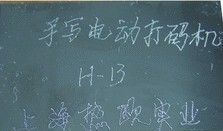 手写电动打码机
H-13
上海懋欧实业